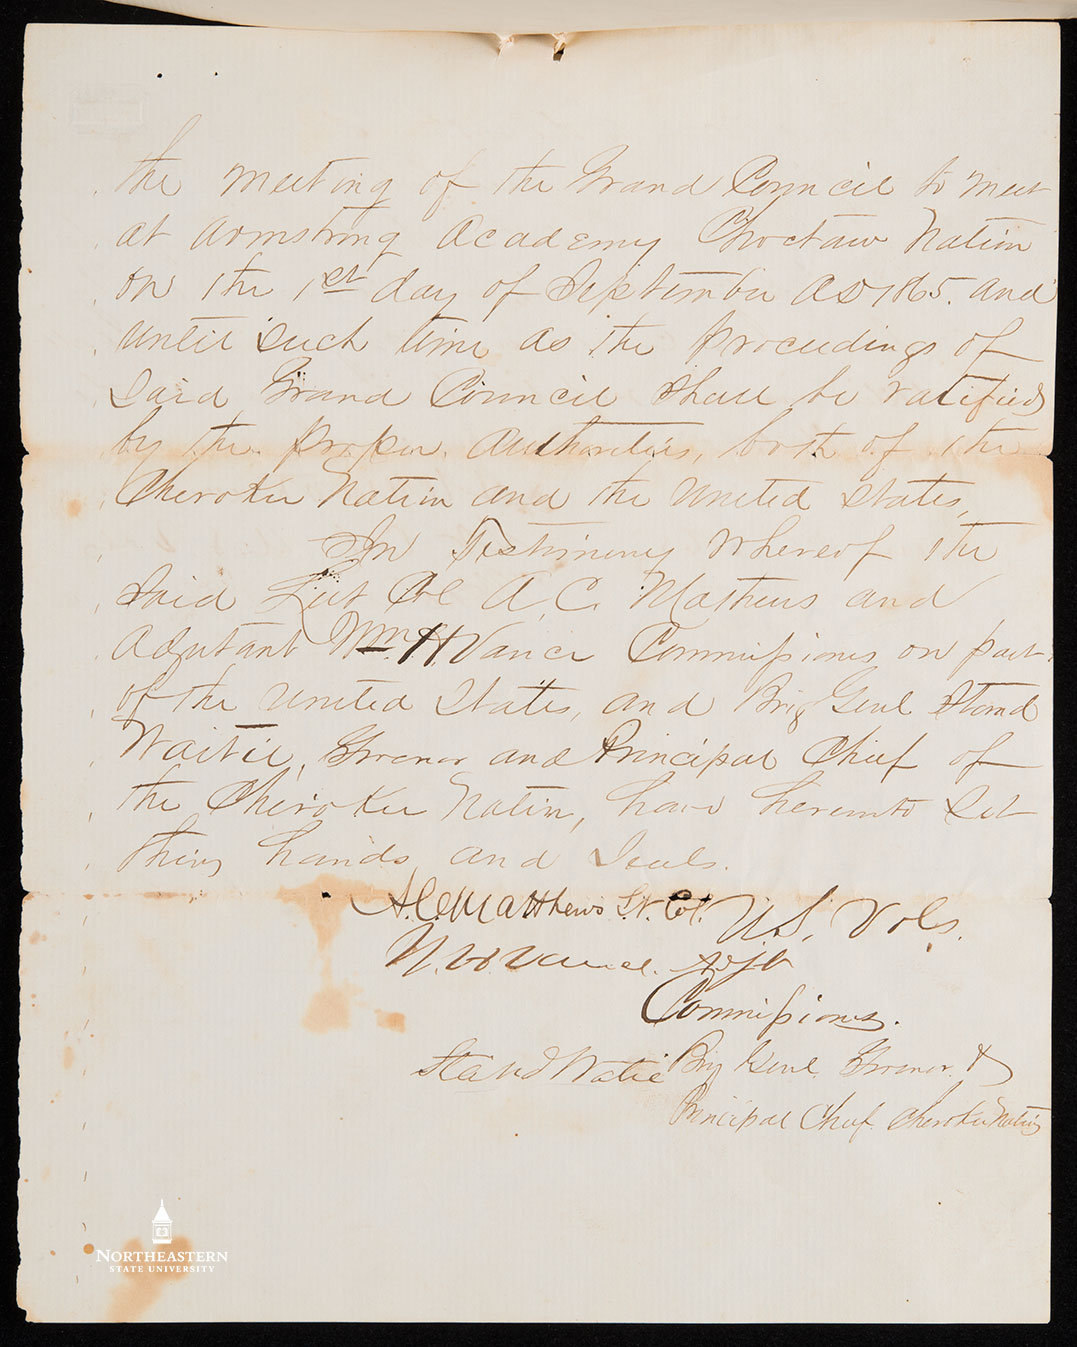 the meeting of the Grand Council to meet
at Armstrong Academy Choctaw Nation
on the 1st day of September AD 1865. and
until such time as the proceedings of
said Grand Council shall be ratified
by the proper authorities, both of the
Cherokee Nation and the United States,
In Testimony whereof the
said Lieut Col A. C. Mathews and
Adjutant Wm H. Vance Commissioners on part
of the United States, and Brig Genl Stand
Waitie, Governor and Principal Chief of
the Cherokee Nation, have hereunto set
their hands and Seals.
A. C. Matthews Lt. Col. U.S. Vols.
W. H. Vance. Adjt
Commissioners.
Stand Watie Brig Genl. Governor &
Principal Chief Cherokee Nation
NORTHEASTERN
STATE UNIVERSITY